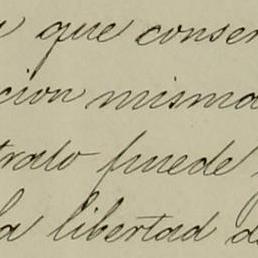 y que conser
cion misma
trato puede
la libertad d